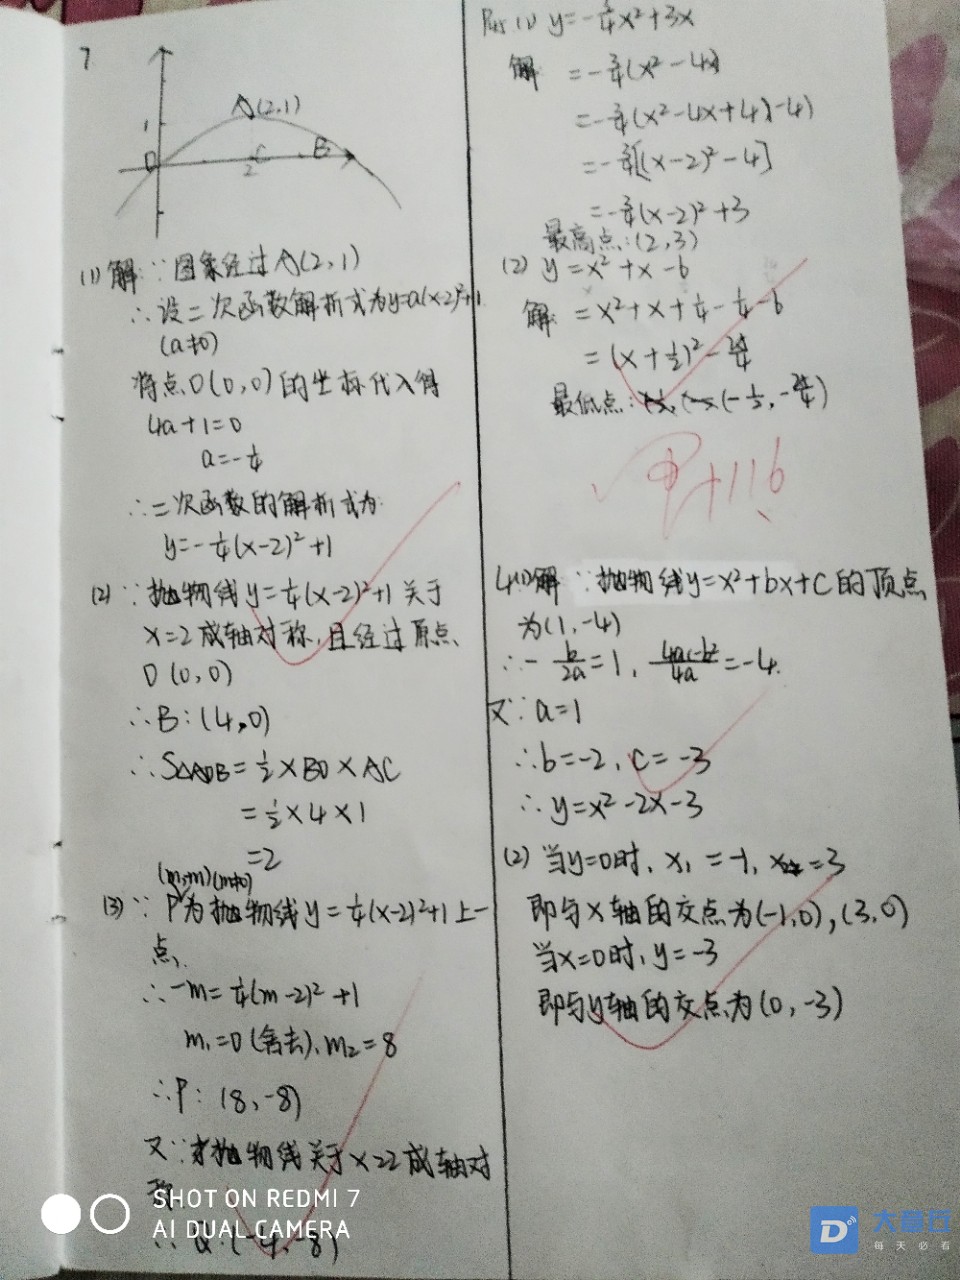 7
A(2,1)
1
O
C
B
2
(1)解:∵图象经过A(2,1)
∴设二次函数解析式为y=a(x-2)²+1
(a≠0)
将点O(0,0)的坐标代入得
4a+1=0
a=-1/4
∴二次函数的解析式为
y=-1/4(x-2)²+1
(2)∵抛物线y=1/4(x-2)²+1关于
x=2成轴对称,且经过原点
O(0,0)
∴B:(4,0)
∴S△AOB=1/2×BO×AC
=1/2×4×1
=2
(m,-m)(m≠0)
(3)∵P为抛物线y=1/4(x-2)²+1上一
点,
∴-m=1/4(m-2)²+1
m₁=0(舍去),m₂=8
∴P:(8,-8)
又∵抛物线关于x=2成轴对
称
∴Q:(-4,-8)
(1) y=-3/4x²+3x
解 =-3/4(x²-4x)
=-3/4(x²-4x+4-4)
=-3/4[(x-2)²-4]
=-3/4(x-2)²+3
最高点:(2,3)
(2) y=x²+x-6
解 =x²+x+1/4-1/4-6
=(x+1/2)²-25/4
最低点:(-1/2,-25/4)
4.(1)解∵抛物线y=x²+bx+c的顶点
为(1,-4)
∴-b/2a=1,(4ac-b²)/4a=-4.
又∵a=1
∴b=-2,c=-3
∴y=x²-2x-3
(2)当y=0时,x₁=-1,x₂=3
即与x轴的交点为(-1,0),(3,0)
当x=0时,y=-3
即与y轴的交点为(0,-3)
SHOT ON REDMI 7
AI DUAL CAMERA
每天必看